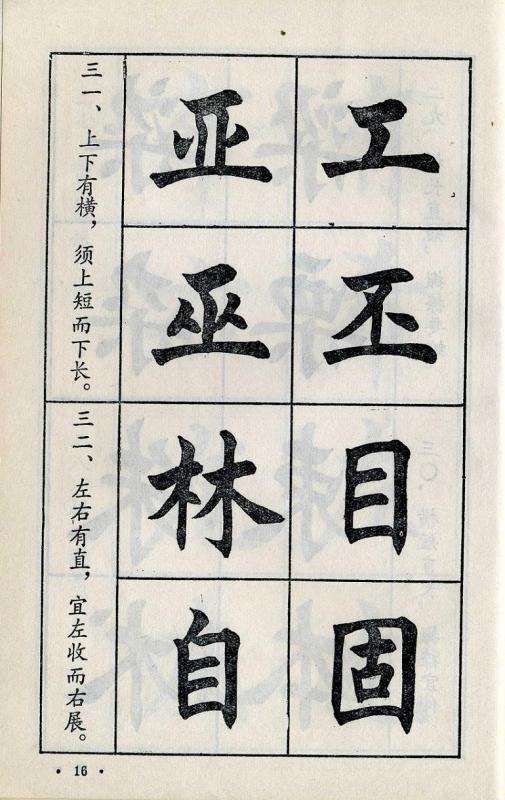 三一、上下有横，须上短而下长。
工
丕
亚
巫
三二、左右有直，宜左收而右展。
目
固
林
自
• 16 •